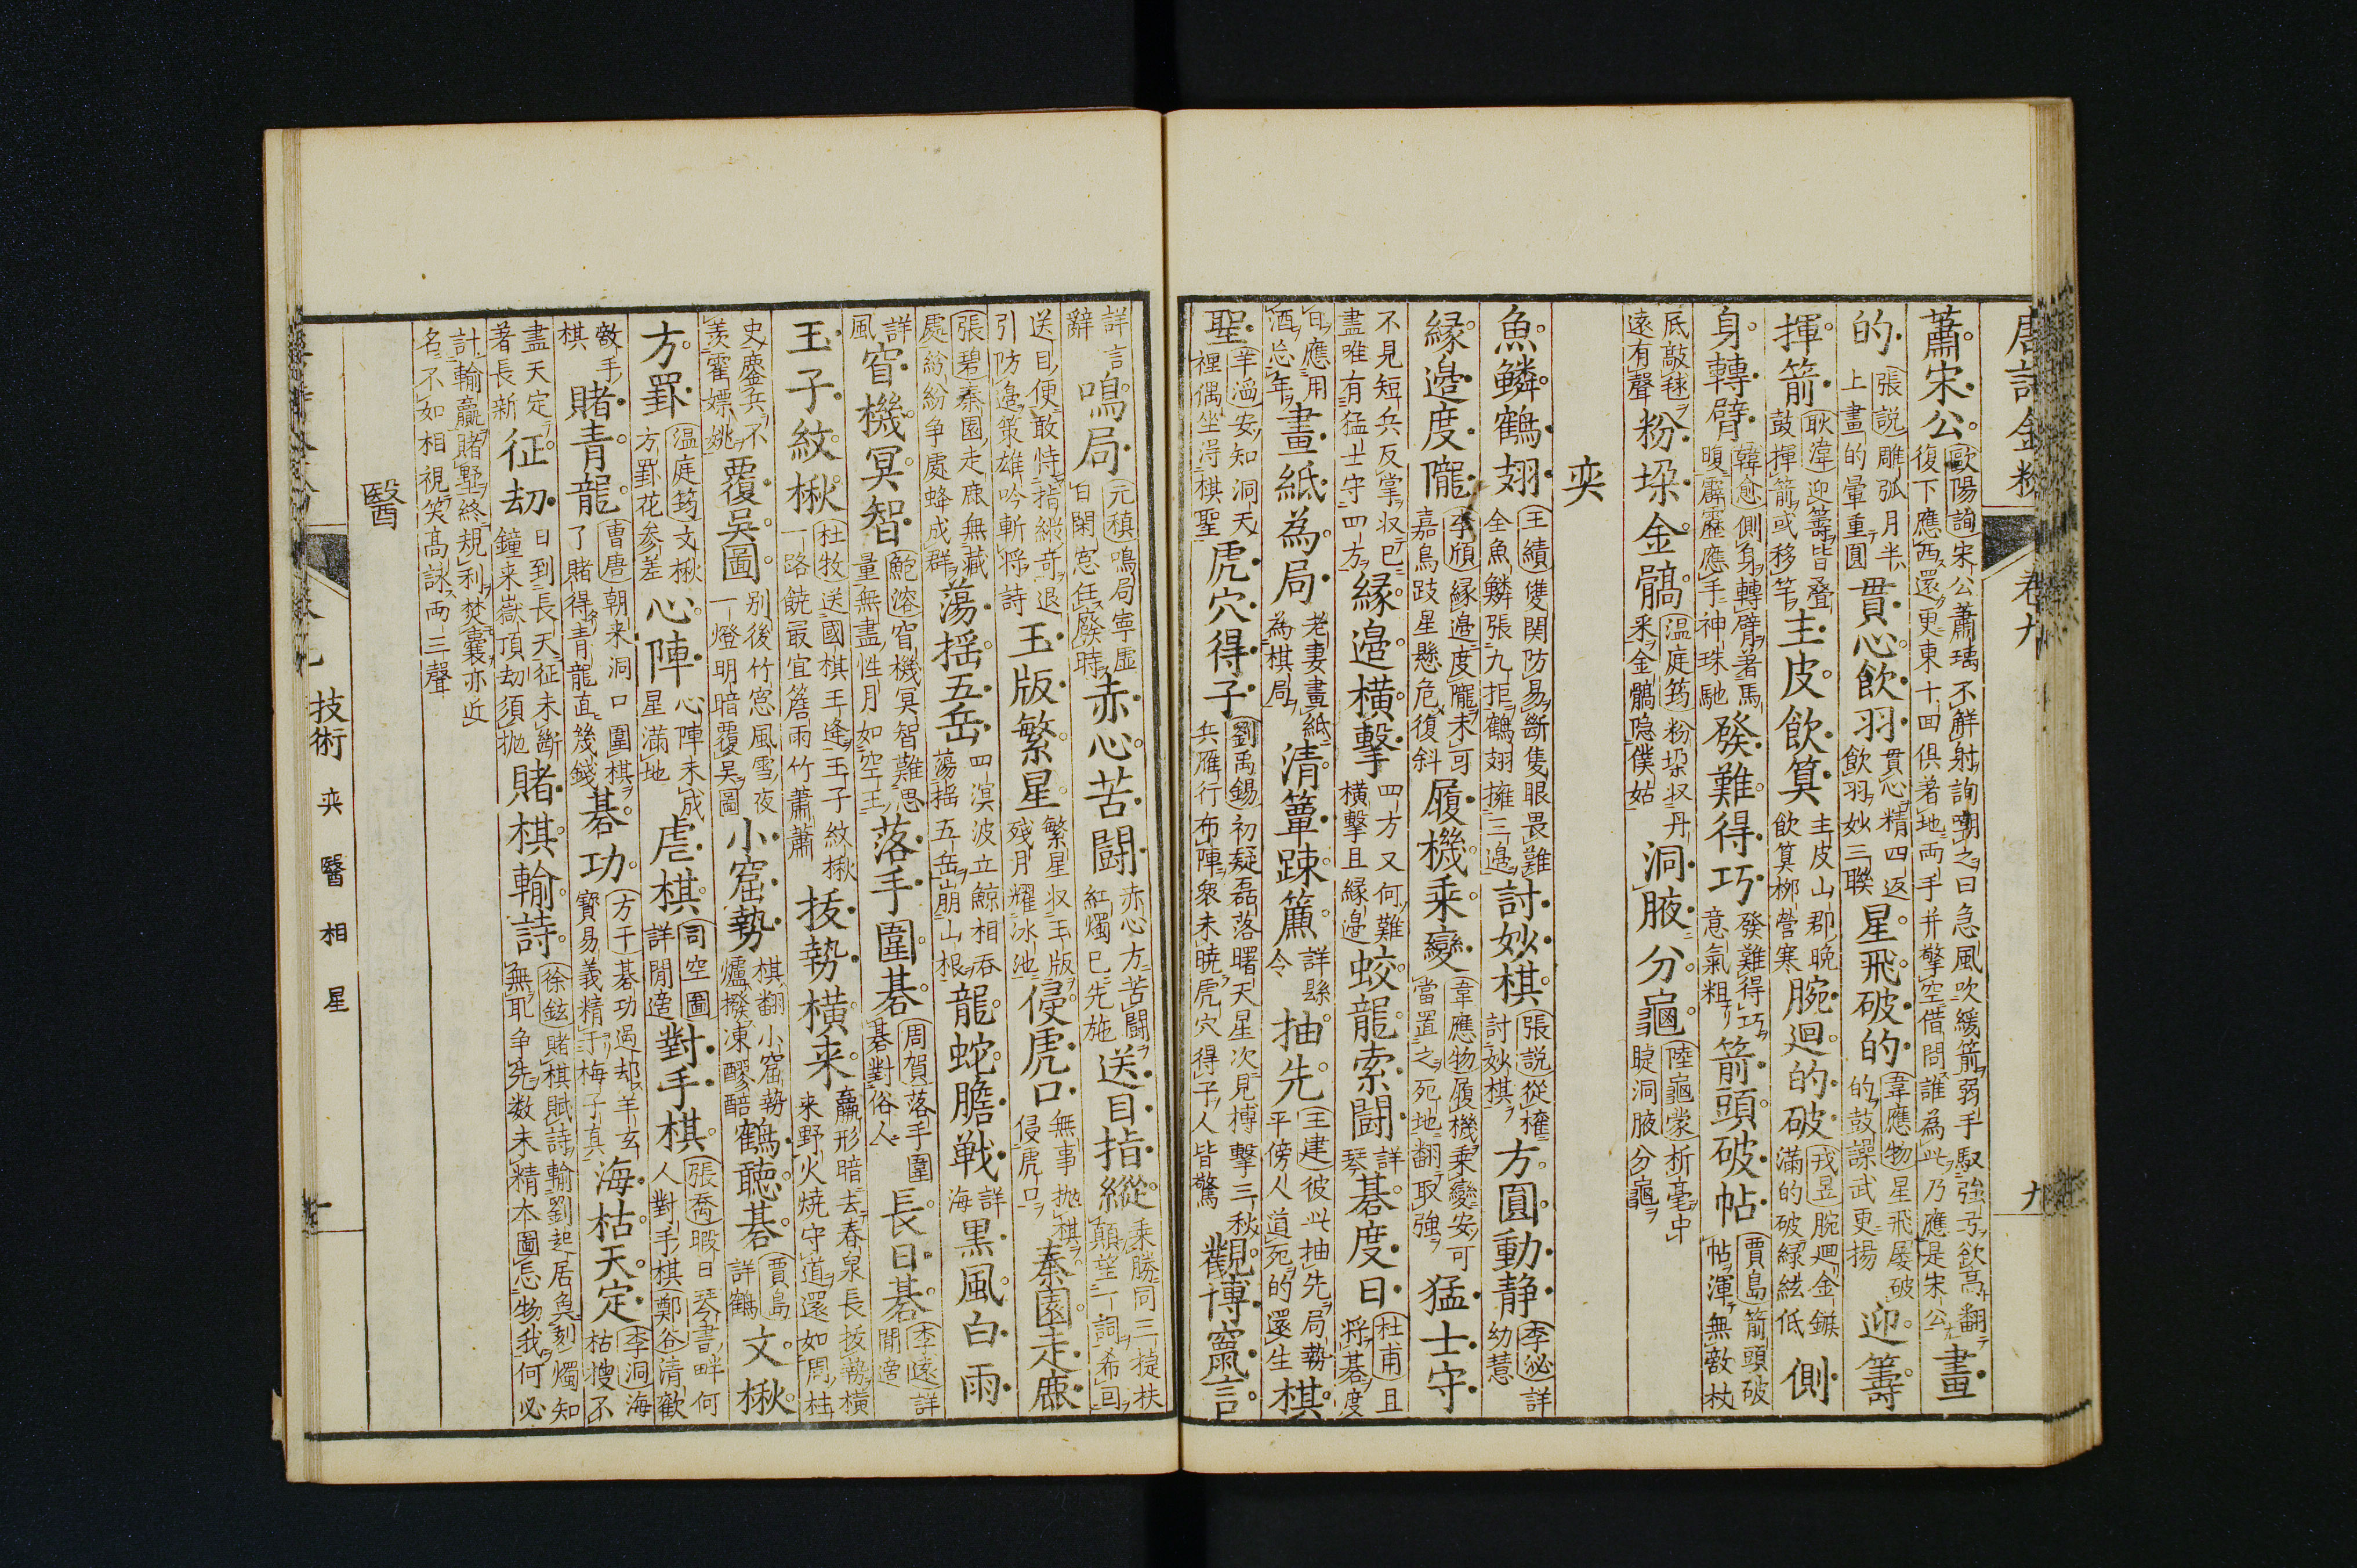 唐詩金粉　卷九　九
蕭宋公　歐陽詢　宋公蕭瑀不解射詢嘲之曰急風吹緩箭弱手馭強弓欲高翻復下應西還更東十回俱著地兩手并擎空借問誰為此乃應是宋公　畫
的　張説　雕弧月半上畫的暈重圓　貫心飲羽　貫心精四返飲羽妙三聯　星飛破的　韋應物　星飛屡破的鼓譟武更揚　迎籌
揮箭　耿湋　迎籌皆疊鼓揮箭或移竿　主皮飲算　主皮山郡晩飲算栁營寒　腕迴的破　戎昱　腕迴金鏃滿的破緑絃低　側
身轉臂　韓愈　側身轉臂著馬腹霹靂應手神珠馳　發難得巧　發難得巧意氣粗　箭頭破帖　賈島　箭頭破帖渾無敵杖
底敲毬遠有聲　粉垜金髇　温庭筠　粉垜収丹采金髇隐僕姑　洞腋分龜　陸龜蒙　析毫中睫洞腋分龜
奕
魚鱗鶴翅　王績　雙関防易斷隻眼畏難全魚鱗張九拒鶴翅擁三邉　討妙棋　張説　從𣙜討妙棋　方圓動静　李泌　詳幼慧
縁邉度隴　李頎　縁邉度隴未可嘉鳥跂星懸危復斜　履機乘變　韋應物　履機乘變安可當置之死地翻取強　猛士守
不見短兵反掌収已盡唯有猛士守四方　縁邉横撃　四方又何難横撃且縁邉　蛟龍索闘　詳琴　碁度日　杜甫　且将碁度
白應用酒忘年　畫紙為局　老妻畫紙為棋局　清簟踈簾　詳縣令　抽先　王建　彼此抽先局勢平傍人道死的還生　棋
聖　辛溫　安知洞天裡偶坐得棋聖　虎穴得子　劉禹錫　初疑磊落曙天星次見搏撃三秋兵雁行布陣衆未暁虎穴得子人皆驚　觀博寓言
詳言辭　鳴局　元稹　鳴局寧虚日閑窓任廢時　赤心苦闘　赤心方苦闘紅燭已先施　送目指縱　乘勝同三捷扶顛望一詞希回
送目便敢恃指縱奇退引防邉策雄吟斬将詩　玉版繁星　繁星収玉版殘月耀冰池　侵虎口　無事抛棋侵虎口　秦園走鹿
張碧　秦園走鹿無藏處紛紛争處蜂成群　蕩揺五岳　四溟波立鯨相吞蕩揺五岳崩山根　龍蛇膽戦　詳海　黒風白雨
詳風　窅機冥智　鮑溶　窅機冥智難思量無盡性月如空王　落手圍碁　周賀　落手圍碁對俗人　長日碁　李遠　詳閒適
玉子紋楸　杜牧　送國棋王逢玉子紋楸一路饒最宜簷雨竹蕭蕭　抜勢横来　羸形暗去春泉長抜勢横来野火焼守道還如周柱
史鏖兵不羡霍嫖姚　覆吳圖　别後竹窓風雪夜一燈明暗覆吳圖　小窟勢　棋翻小窟勢爐撥凍醪醅　鶴聴碁　賈島　詳鶴　文楸
方罫　温庭筠　文楸方罫花参差　心陣　心陣未成星滿地　虐棋　司空圖　詳閒適　對手棋　張喬　暇日琴書畔何人對手棋　鄭谷　清歡
敵手棋　賭青龍　曹唐　朝来洞口圍棋了賭得青龍直幾錢　碁功　方干　碁功過却羊玄寳易義精于梅子真　海枯天定　李洞　海枯搜不
盡天定著長新　征刼　日到長天征未斷鐘来嶽頂刼須抛　賭棋輸詩　徐鉉　賭棋賦詩輸劉起居奐　刻燭知無耻争先数未精本圖忘物我何必
計輸贏賭墅終規利焚囊亦近名不如相視笑髙詠兩三聲
醫
技術　奕　醫　相　星